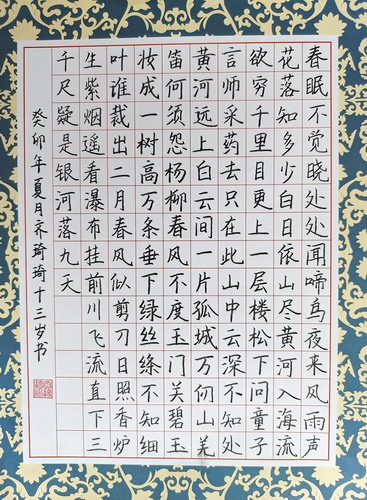 春眠不觉晓处处闻啼鸟夜来风雨声
花落知多少白日依山尽黄河入海流
欲穷千里目更上一层楼松下问童子
言师采药去只在此山中云深不知处
黄河远上白云间一片孤城万仞山羌
笛何须怨杨柳春风不度玉门关碧玉
妆成一树高万条垂下绿丝绦不知细
叶谁裁出二月春风似剪刀日照香炉
生紫烟遥看瀑布挂前川飞流直下三
千尺疑是银河落九天
癸卯年夏月齐琦琦十三岁书